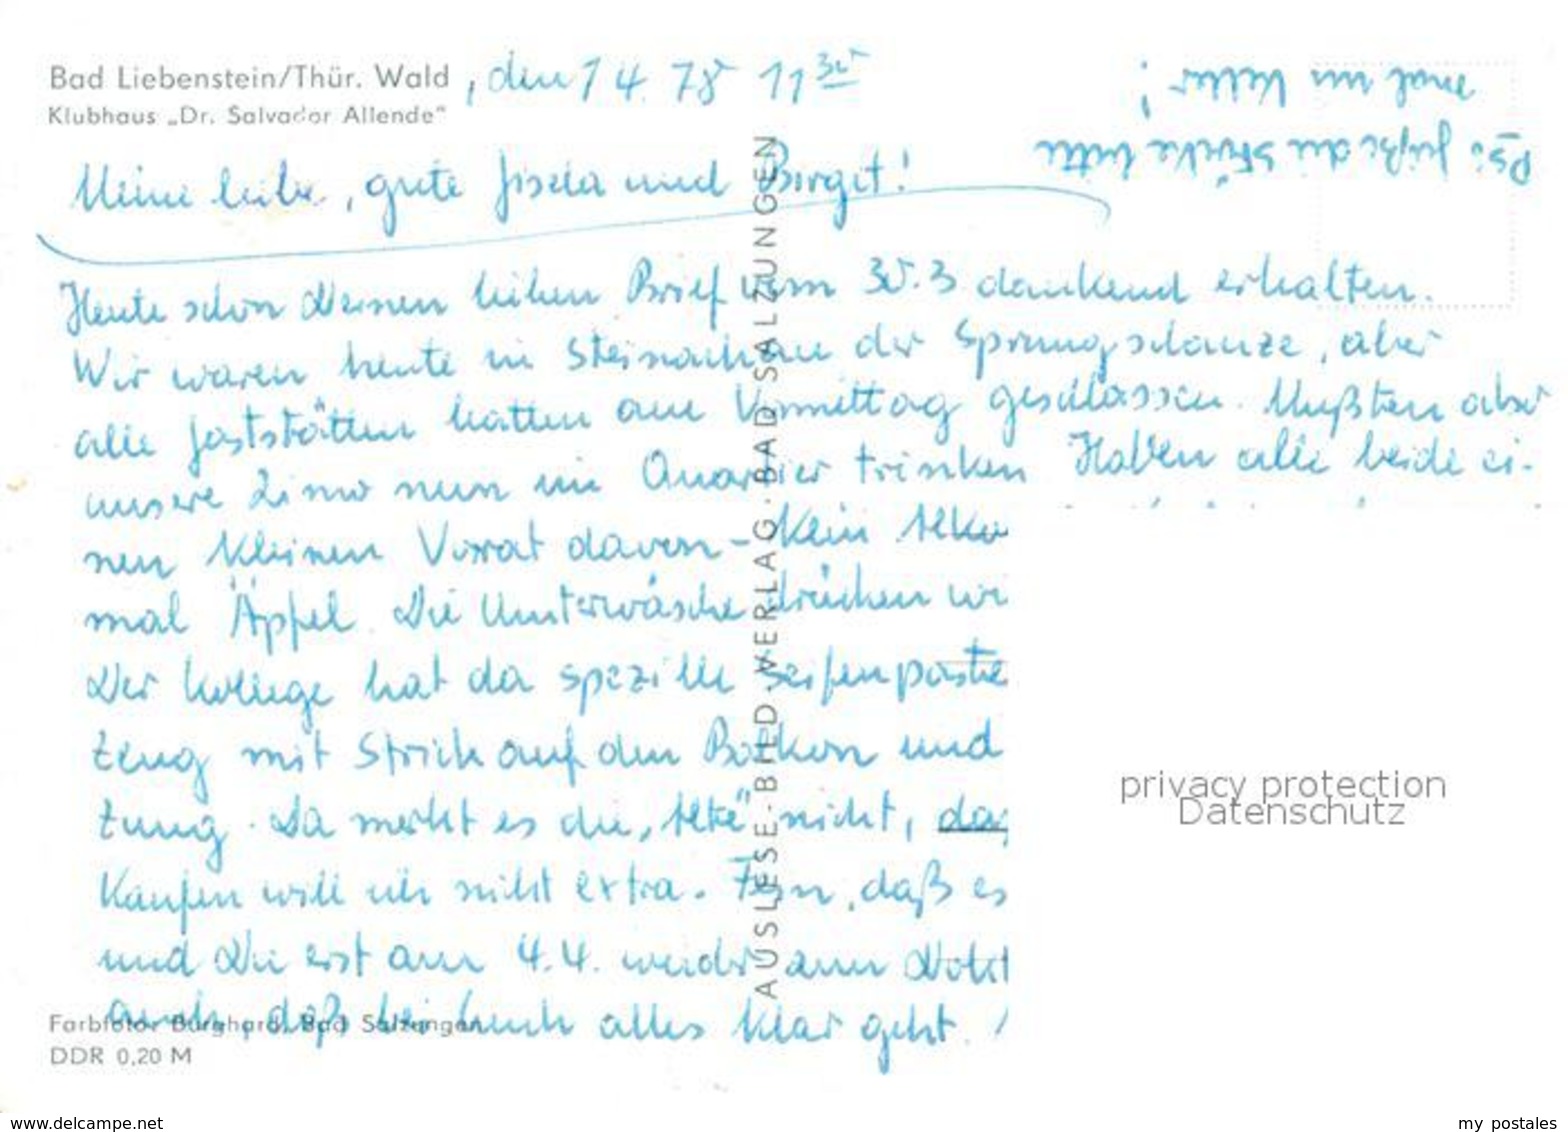 Bad Liebenstein/Thür. Wald, den 1 4. 78 11 30
Klubhaus „Dr. Salvador Allende"
Meine liebe, gute Gisela und Birgit!
Heute schon Deinen lieben Brief vom 30.3 dankend erhalten.
Wir waren heute in Steinach an der Sprungschanze, aber
alle Gaststätten hatten am Vormittag geschlossen. Mußten aber
unsere Limo nun im Quartier trinken Haben alle beide ei-
nen kleinen Vorrat davon - kein Alko
mal Äpfel. Die Unterwäsche drücken wi
Der Kollege hat da spezille Seifenpaste
zeug mit Strick auf den Balkon und
tung. Da merkt es die „Alte" nicht, das
Kaufen will ich nicht extra. Fein, daß es
und Du erst am 4.4. wieder zum
auch, daß bei Euch alles klar geht. !
Ps: Grüße die Stricke bitte
mal im Keller!
AUSLESE-BILD-VERLAG·BAD SALZUNGEN
Farbfoto: Burghard, Bad Salzungen
DDR 0,20 M
privacy protection
Datenschutz
www.delcampe.net
my postales